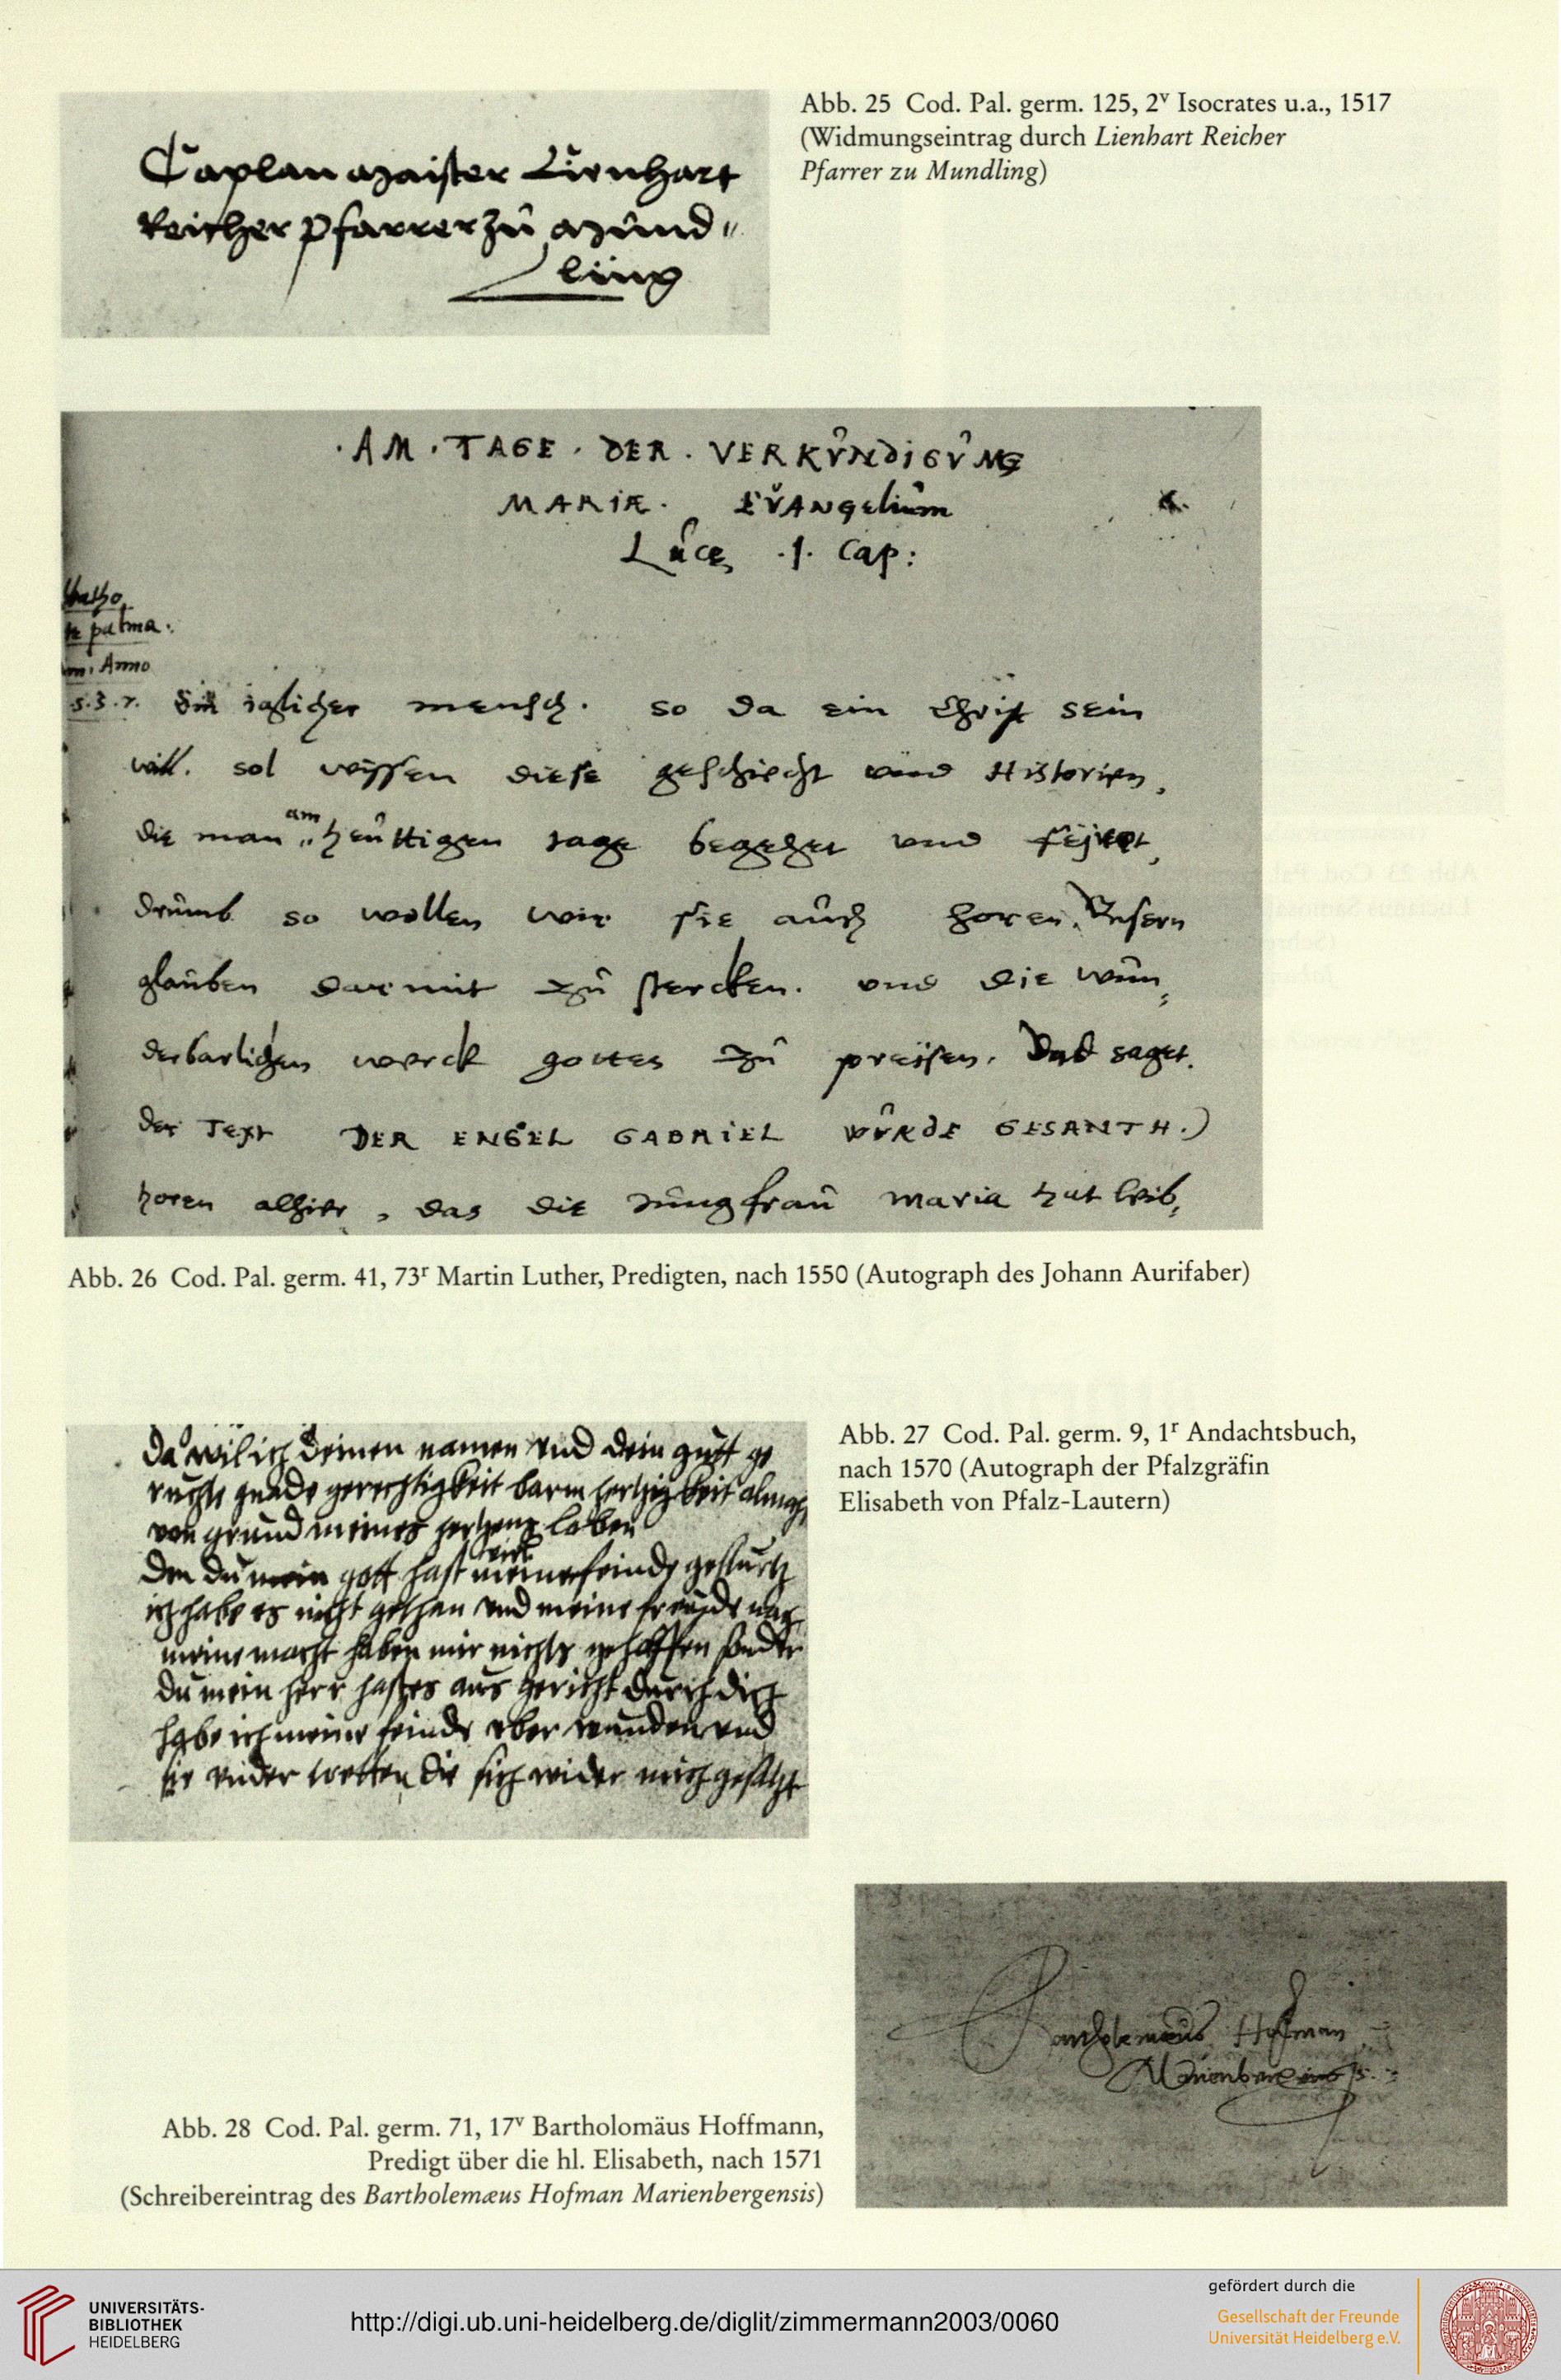 Caplan Maister Lienhart
Reicher Pfarrer zů Münd〃
ling
Abb. 25 Cod. Pal. germ. 125, 2ᵛ Isocrates u.a., 1517
(Widmungseintrag durch Lienhart Reicher
Pfarrer zu Mundling)
· AM · TAGE · DER · VERKŮNDIGŮNG
MARIÆ · EVANGeliům
Lůcę ·1· Cap:
palma.
Anno
Ein iglicher mensch. so da ein Christ sein
will. sol wissen diese geschicht vnd Historien,
die man am heůttigen tage begehet vnd fejret,
drůmb so wollen wir sie aůch horen, Vnsern
glaůben darmit zů stercken. vnd die wůn,
derbarlichen werck gottes zů preisen. Das saget.
der Text DER ENGEL GABRIEL WŮRDE GESANTH.)
horen alhier, das die Jůngfraů Maria hat leib,
Abb. 26 Cod. Pal. germ. 41, 73ʳ Martin Luther, Predigten, nach 1550 (Autograph des Johann Aurifaber)
da wil ich deinen namen vnd dein gutt ge
ruchte gnade gerechtigkeit barmhertzigkeit
von grund meines hertzens loben
den du mein gott hast meine feinde gesturtz
ich habe es nicht gethan vnd meine freunde
meine macht haben mir nichts geholffen sonder
du mein herr hast es aus gericht durch dich
habe ich meine feinde vber wunden vnd
sie vnder tretten die sich wider mich gesatzt
Abb. 27 Cod. Pal. germ. 9, 1ʳ Andachtsbuch,
nach 1570 (Autograph der Pfalzgräfin
Elisabeth von Pfalz-Lautern)
Bartholemæus Hofman
Marienbergensis
Abb. 28 Cod. Pal. germ. 71, 17ᵛ Bartholomäus Hoffmann,
Predigt über die hl. Elisabeth, nach 1571
(Schreibereintrag des Bartholemæus Hofman Marienbergensis)
UNIVERSITÄTS-
BIBLIOTHEK
HEIDELBERG
http://digi.ub.uni-heidelberg.de/diglit/zimmermann2003/0060
gefördert durch die
Gesellschaft der Freunde
Universität Heidelberg e.V.